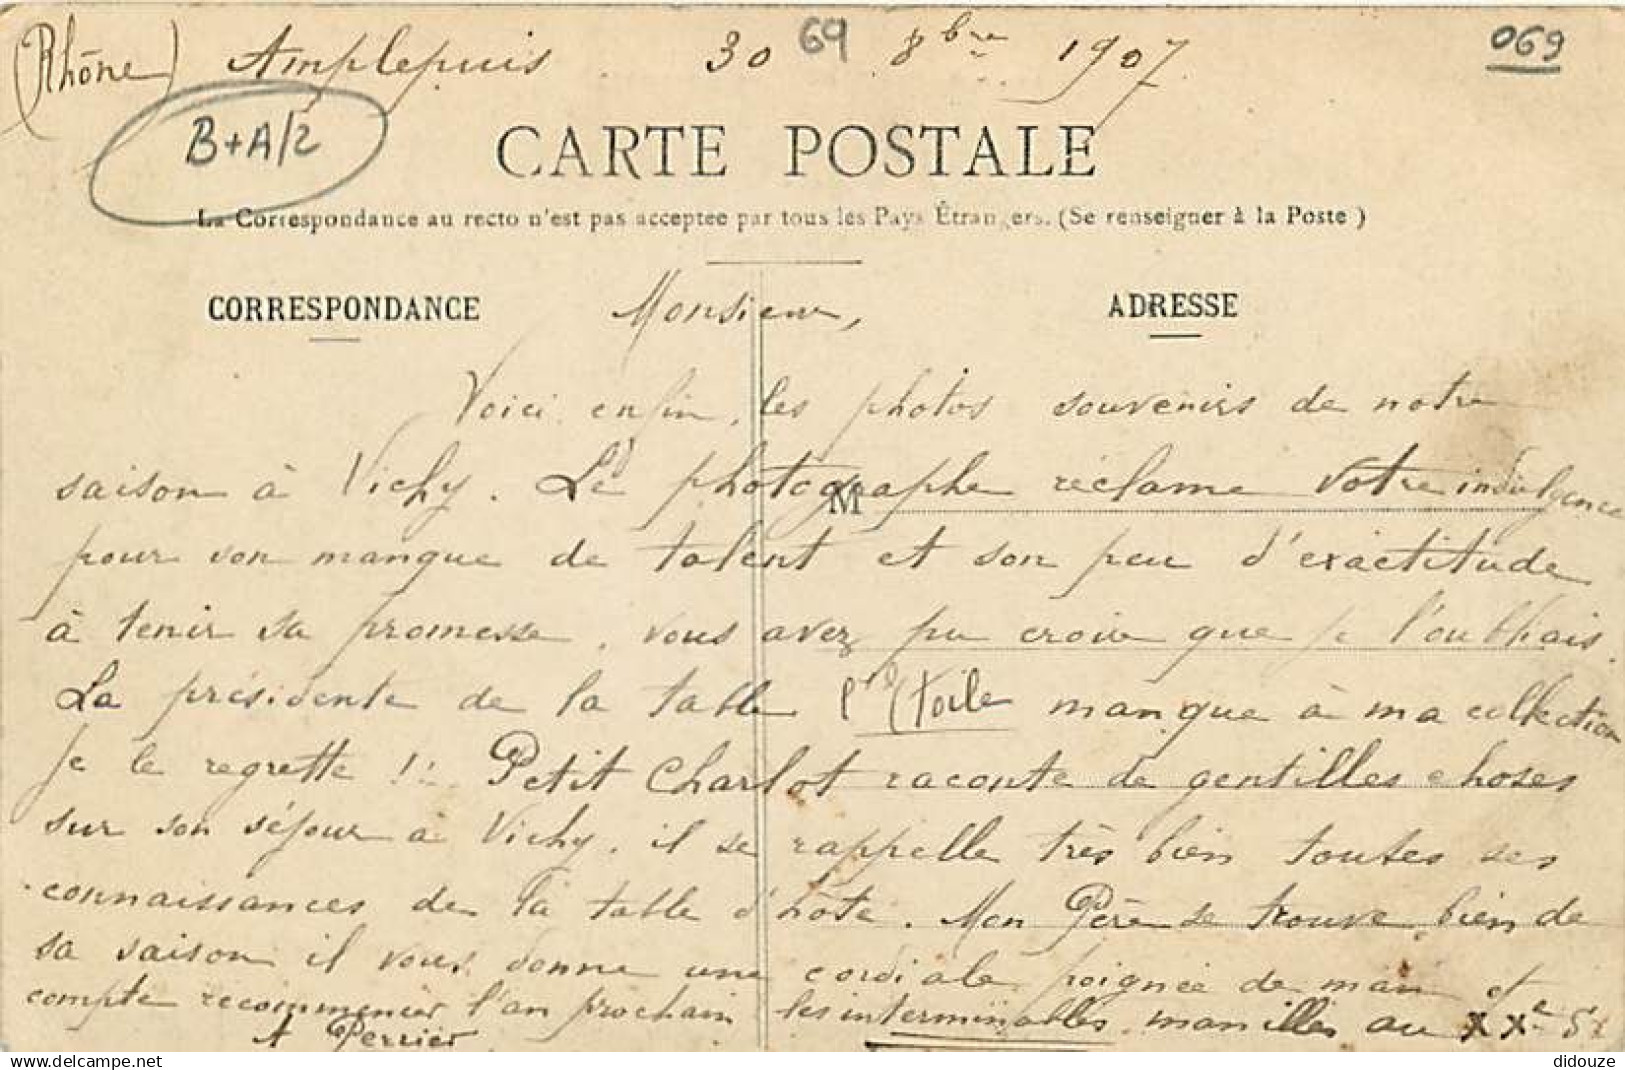 (Rhône) Amplepuis 30 69 8bre 1907 069
B+A/2
CARTE POSTALE
La Correspondance au recto n'est pas acceptee par tous les Pays Étrangers. (Se renseigner à la Poste)
CORRESPONDANCE Monsieur, ADRESSE
Voici enfin, les photos souvenirs de notre
M
saison à Vichy. Le photographe réclame votre indulgence
pour son manque de talent et son peu d'exactitude
à tenir sa promesse, vous avez pu croire que je l'oubliais.
La présidente de la table l'Etoile manque à ma collection
Je le regrette !! Petit Charlot raconte de gentilles choses
sur son séjour à Vichy, il se rappelle très bien toutes ses
connaissances de la table d'hôte. Mon Père se trouve bien de
sa saison il vous donne une cordiale poignée de main et
compte recommencer l'an prochain les interminables manilles au XXe
A Perrier
didouze